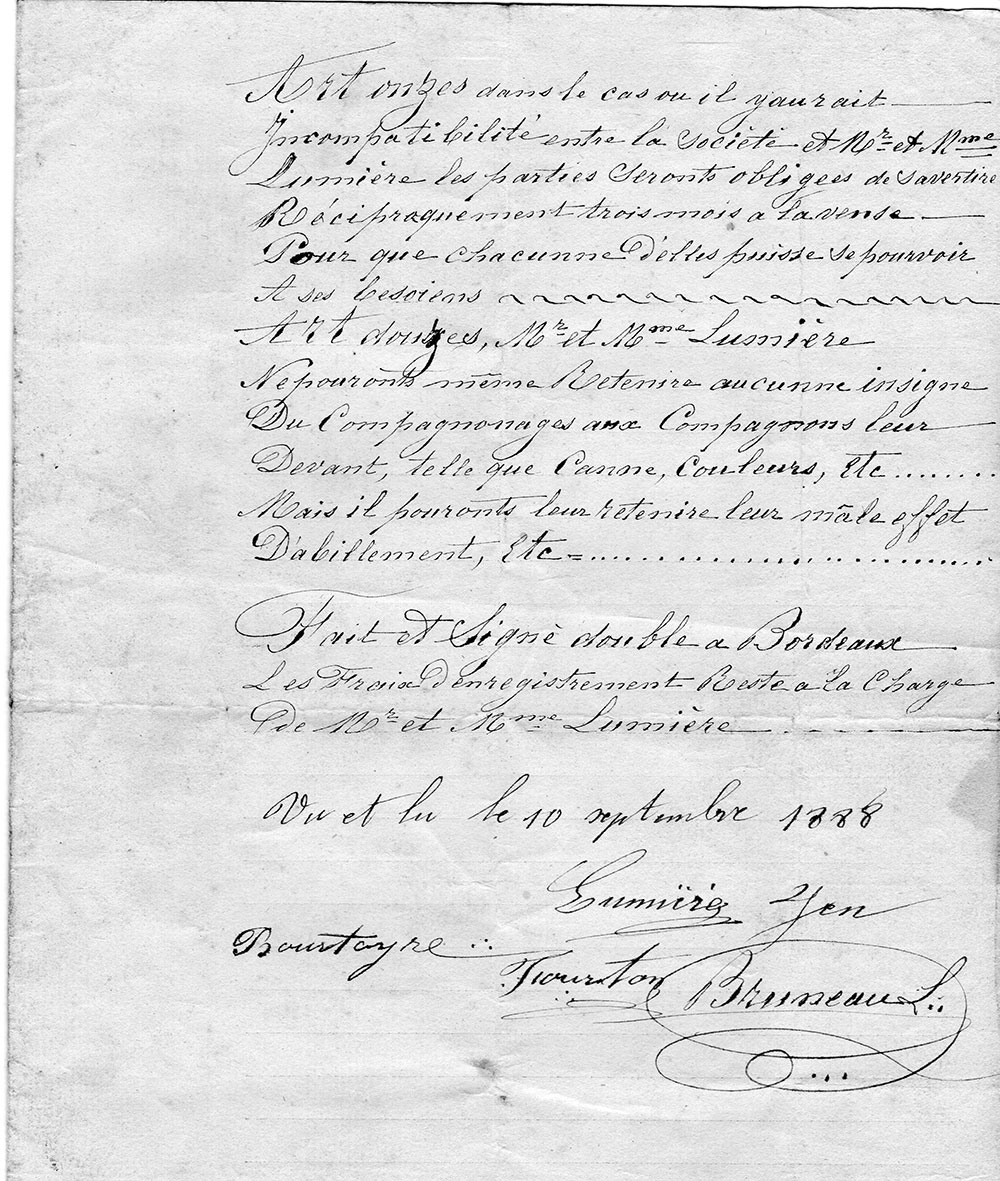 Art onzes dans le cas ou il y aurait
Incompatibilité entre la Sociètè et Mr et Mme
Lumière les parties Seronts obligees de savertire
Réciproquement trois mois a lavense
Pour que chacunne D'elles puisse se pourvoir
A ses besoiens
Art douzes, Mr et Mme Lumière
Ne pouronts même Retenire aucunne insigne
Du Compagnonages aux Compagnons leur
Devant, telle que Canne, Couleurs, Etc ........
Mais il pouronts leur retenire leur mâle effet
D'abillement, Etc = ..............................
Fait et Signè double a Bordeaux
Les Fraix D'enregistrement Reste a la Charge
de Mr et Mme Lumière
Vu et lu le 10 septembre 1888
Lumière Jen
Bourtayre ∴
Tourton
Bruneau L∴